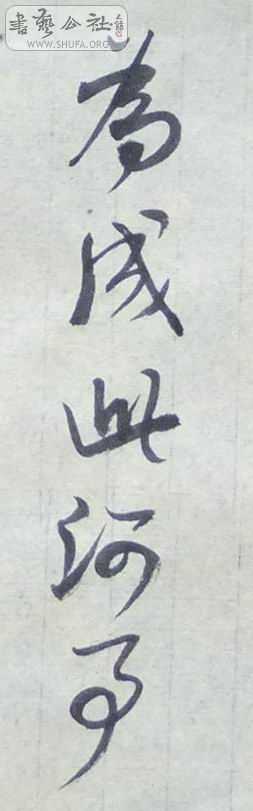 書藝公社
WWW.SHUFA.ORG
為成此河事